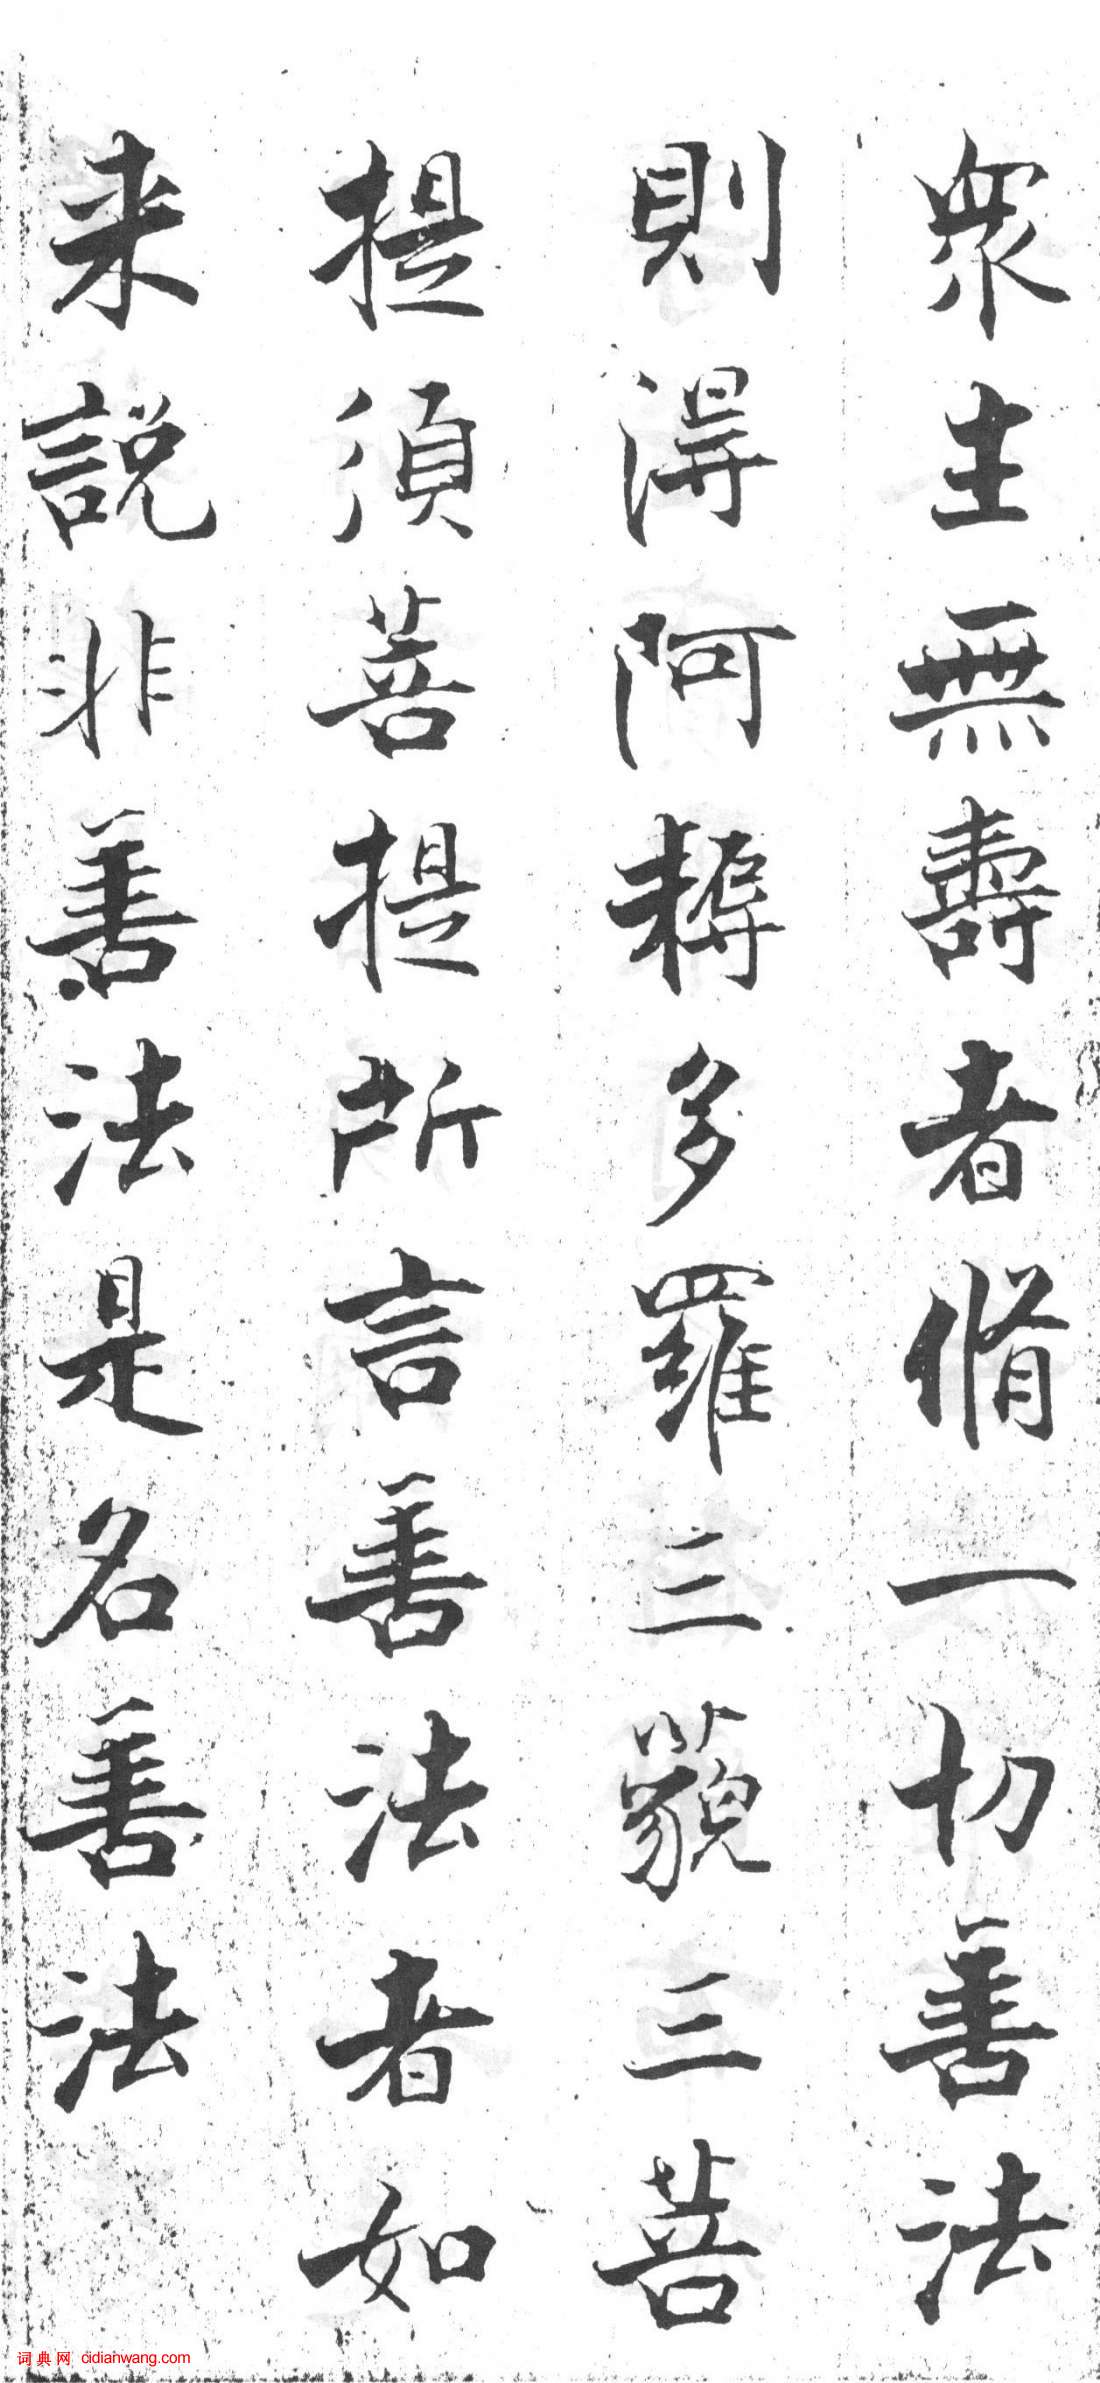 衆生無壽者脩一切善法
則得阿耨多羅三藐三菩
提須菩提所言善法者如
来說非善法是名善法
词典网 cidianwang.com